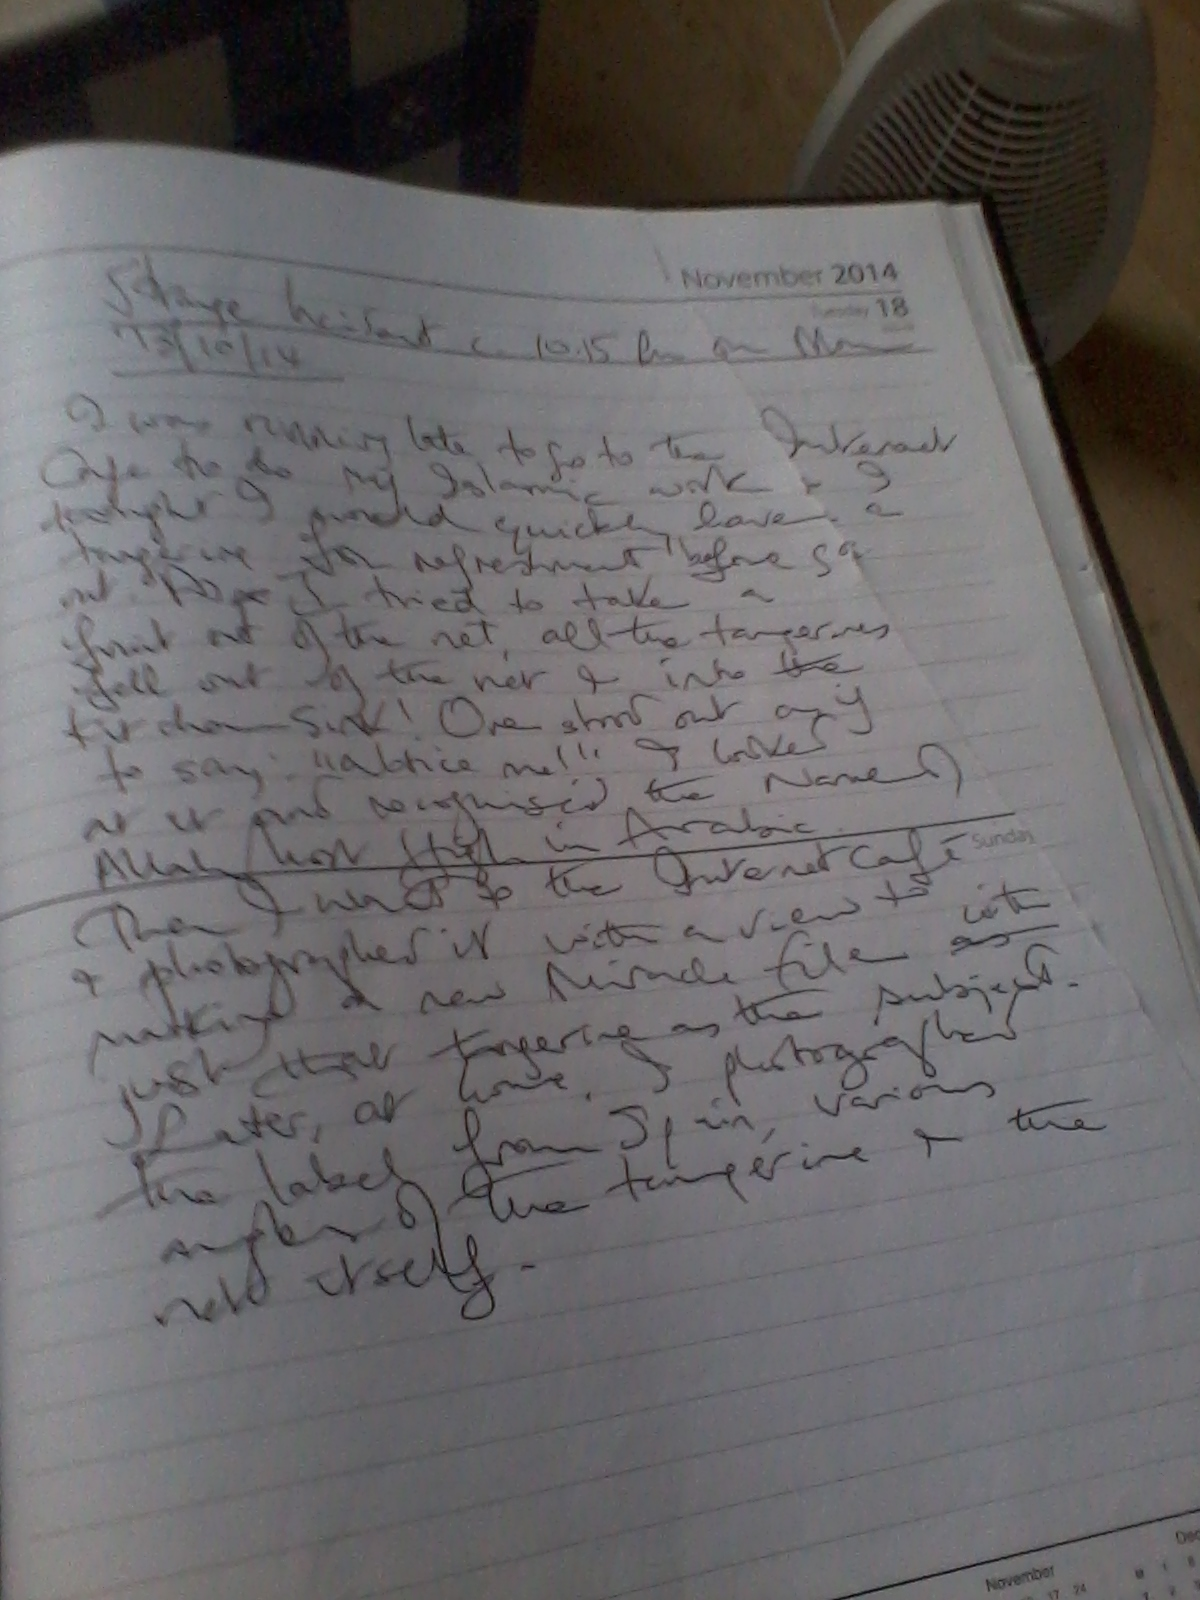 November 2014
Tuesday 18
Strange Incident c. 10.15 on Mon
/10/14
I was running late to go to the Internet
Cafe to do my Islamic work + I
thought I would quickly have a
tangerine for refreshment before go
out. I tried to take a
fruit out of the net, all the tangerines
fell out of the net & into the
kitchen sink! One stood out as if
to say: "Notice me!!" I looked
at it and recognised the Name of
Allah Most High in Arabic.
Sunday
Then I went to the Internet Café
+ photographed it with a view to
making a new Miracle file with
just that tangerine as the subject.
Later, at home, I photographed
the label from Spain, various
angles of the tangerine + the
net itself.
November
Dec
17 24
M 1 8